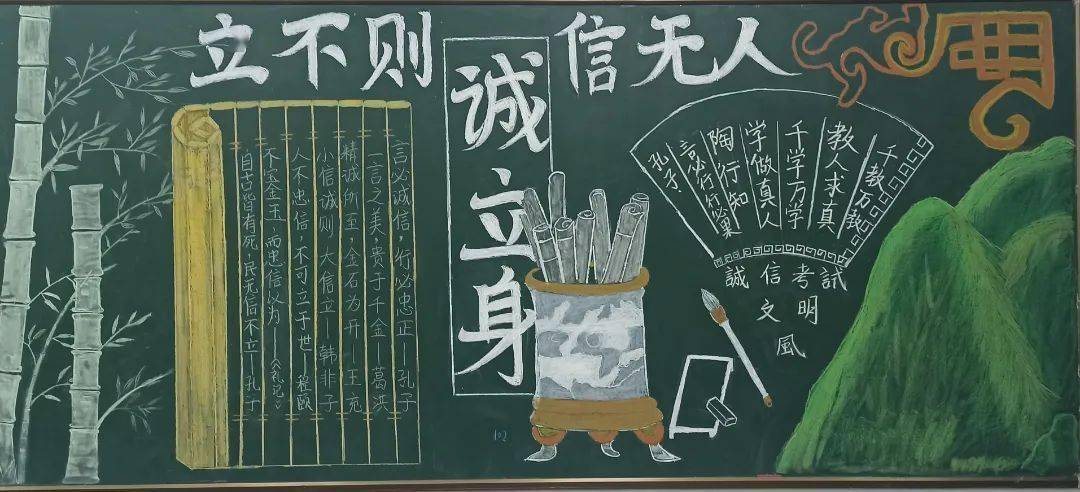 人无信则不立
誠立身
言必诚信，行必忠正——孔子
一言之美，贵于千金——葛洪
精诚所至，金石为开——王充
小信诚则大信立——韩非子
人不忠信，不可立于世——程颐
不宝金玉，而忠信以为——《礼记》
自古皆有死，民无信不立——孔子
千教万教
教人求真
千学万学
学做真人
陶行知
言必行行必果
孔子
誠信考試
文明
風
102